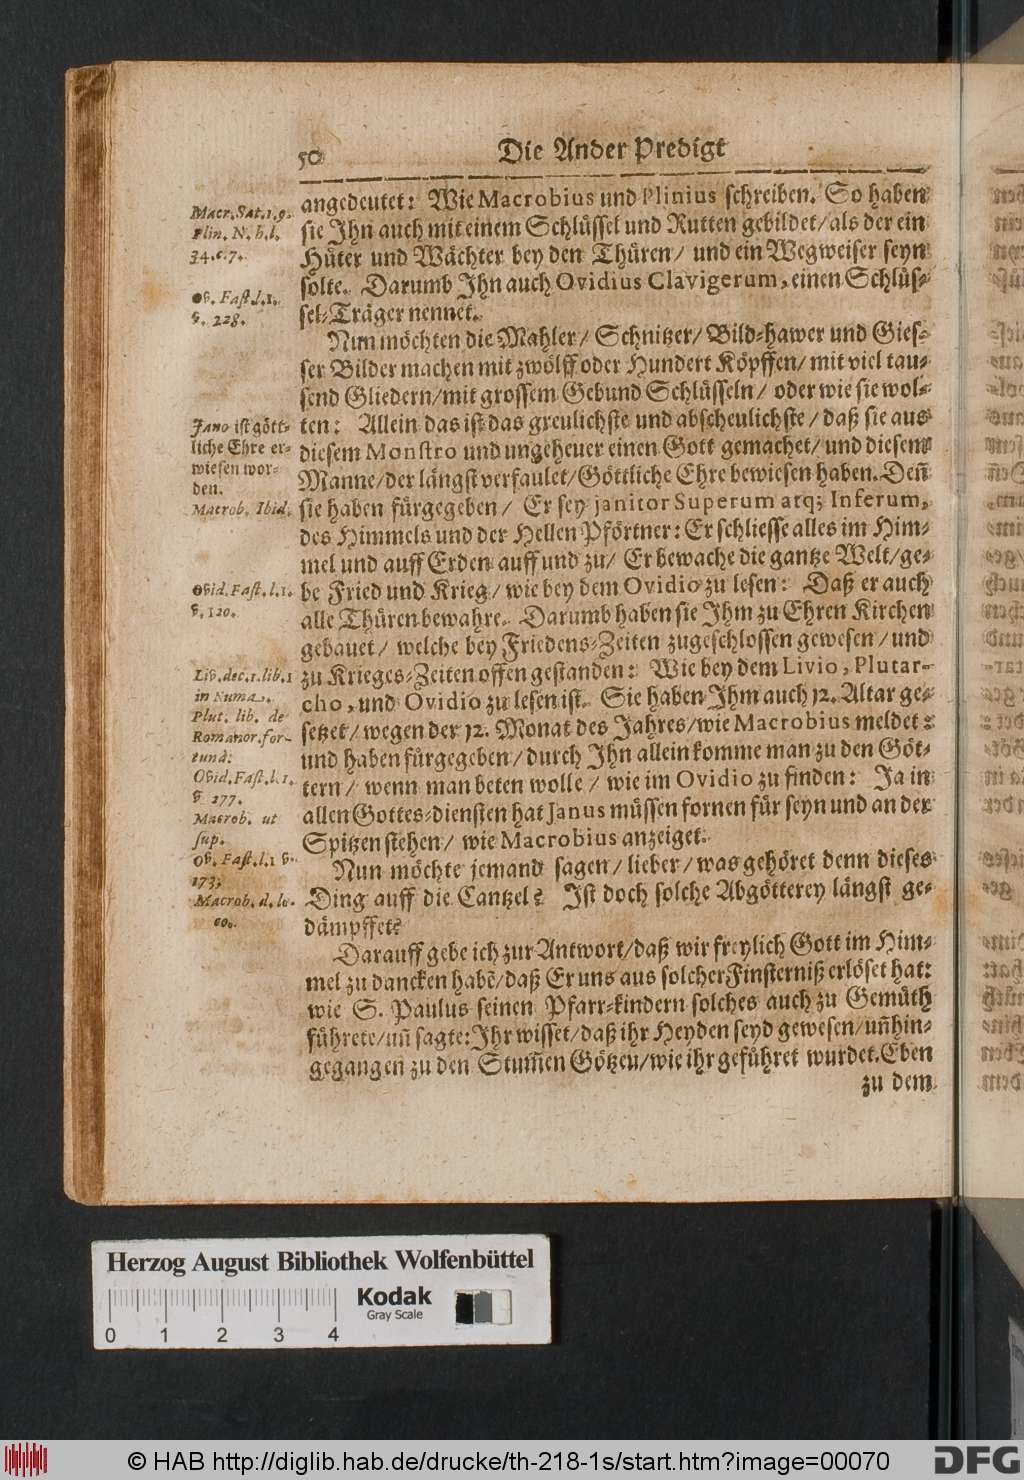 50
Die Ander Predigt
angedeutet: Wie Macrobius und Plinius schreiben. So haben
sie Ihn auch mit einem Schlüssel und Rutten gebildet/als der ein
Hüter und Wächter bey den Thüren/ und ein Wegweiser seyn
solte. Darumb Ihn auch Ovidius Clavigerum, einen Schlüs-
sel-Träger nennet.
Nun möchten die Mahler/ Schnitzer/ Bild-hawer und Gies-
ser Bilder machen mit zwölff oder Hundert Köpffen/ mit viel tau-
send Gliedern/mit grossem Gebund Schlüsseln/ oder wie sie wol-
ten: Allein das ist das greulichste und abscheulichste/ daß sie aus
diesem Monstro und ungeheuer einen Gott gemachet/ und diesem
Manne/der längst verfaulet/Göttliche Ehre bewiesen haben. Deñ
sie haben fürgegeben/ Er sey janitor Superum atq; Inferum,
des Himmels und der Hellen Pförtner: Er schliesse alles im Him-
mel und auff Erden auff und zu/ Er bewache die gantze Welt/ge-
be Fried und Krieg/ wie bey dem Ovidio zu lesen: Daß er auch
alle Thüren bewahre. Darumb haben sie Ihm zu Ehren Kirchen
gebauet/ welche bey Friedens-Zeiten zugeschlossen gewesen/ und
zu Krieges-Zeiten offen gestanden: Wie bey dem Livio, Plutar-
cho, und Ovidio zu lesen ist. Sie haben Ihm auch 12. Altar ge-
setzet/ wegen der 12. Monat des Jahres/wie Macrobius meldet:
und haben fürgegeben/durch Ihn allein komme man zu den Göt-
tern/ wenn man beten wolle/ wie im Ovidio zu finden: Ja in
allen Gottes-diensten hat Janus müssen fornen für seyn und an der
Spitzen stehen/ wie Macrobius anzeiget.
Nun möchte jemand sagen/ lieber/ was gehöret denn dieses
Ding auff die Cantzel? Ist doch solche Abgötterey längst ge-
dämpffet?
Darauff gebe ich zur Antwort/daß wir freylich Gott im Him-
mel zu dancken habẽ/daß Er uns aus solcher Finsterniß erlöset hat:
wie S. Paulus seinen Pfarr-kindern solches auch zu Gemüth
führete/uñ sagte: Ihr wisset/daß ihr Heyden seyd gewesen/uñ hin-
gegangen zu den Stum̃en Götzen/wie ihr geführet wurdet. Eben
zu dem
Macr. Sat. 1. 9.
Plin. N. h. l.
34. c. 7.
Ov. Fast. l. 1.
v. 228.
Jano ist gött-
liche Ehre er-
wiesen wor-
den.
Macrob. Ibid.
Ovid. Fast. l. 1.
v. 120.
Liv. dec. 1. lib. 1
in Numa.
Plut. lib. de
Romanor. for-
tund:
Ovid. Fast. l. 1.
v 277.
Macrob. ut
sup.
Ov. Fast. l. 1 v.
173;
Macrob. d. lo-
co.
Herzog August Bibliothek Wolfenbüttel
Kodak
Gray Scale
0 1 2 3 4
© HAB http://diglib.hab.de/drucke/th-218-1s/start.htm?image=00070
DFG